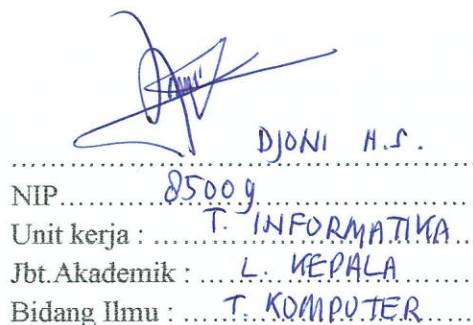 DJONI H.S.
NIP........85009............
Unit kerja : ......T. INFORMATIKA
Jbt.Akademik : ....L. KEPALA......
Bidang Ilmu : ....T. KOMPUTER....